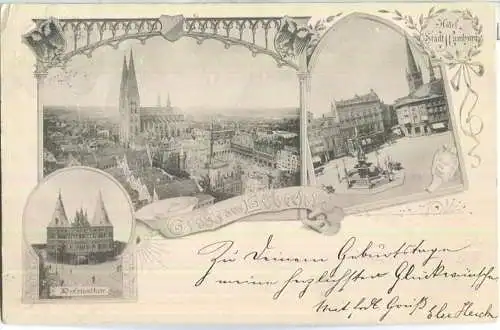 Hôtel
Stadt Hamburg
Gruss aus Lübeck
Holstenthor.
Zu Deinem Geburtstage
meine herzlichsten Glückwünsche
Mit frdl. Gruß